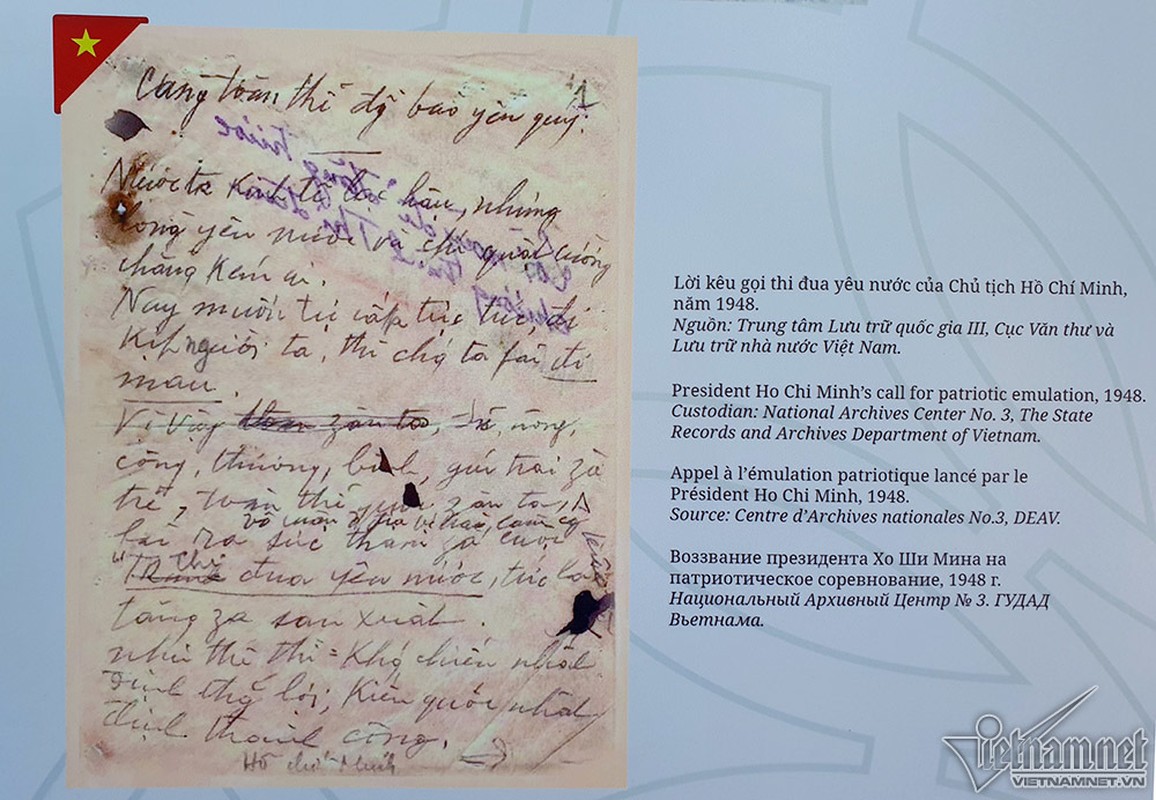 1
Cùng toàn thể đg bào yêu quý.
Nước ta kinh tế lạc hậu, nhưng
lòng yêu nước và chí quật cường
chẳng kém ai.
Nay muốn tự cấp tự túc, đi
kịp người ta, thì chg ta fải đi
mau.
Vì vậy sĩ, nông,
công, thương, binh, gái trai zà
trẻ, toàn thể zân ta,
fải ra sức tham za cuộc
"Thi đua yêu nước, tức là
tăng za sản xuất.
như thế thì = Khg chiến nhất
định thắg lợi, Kiến quốc nhất
định thành công.
Hồ Chí Minh
Lời kêu gọi thi đua yêu nước của Chủ tịch Hồ Chí Minh,
năm 1948.
Nguồn: Trung tâm Lưu trữ quốc gia III, Cục Văn thư và
Lưu trữ nhà nước Việt Nam.
President Ho Chi Minh's call for patriotic emulation, 1948.
Custodian: National Archives Center No. 3, The State
Records and Archives Department of Vietnam.
Appel à l'émulation patriotique lancé par le
Président Ho Chi Minh, 1948.
Source: Centre d'Archives nationales No.3, DEAV.
Воззвание президента Хо Ши Мина на
патриотическое соревнование, 1948 г.
Национальный Архивный Центр № 3. ГУДАД
Вьетнама.
Vietnamnet
VIETNAMNET.VN